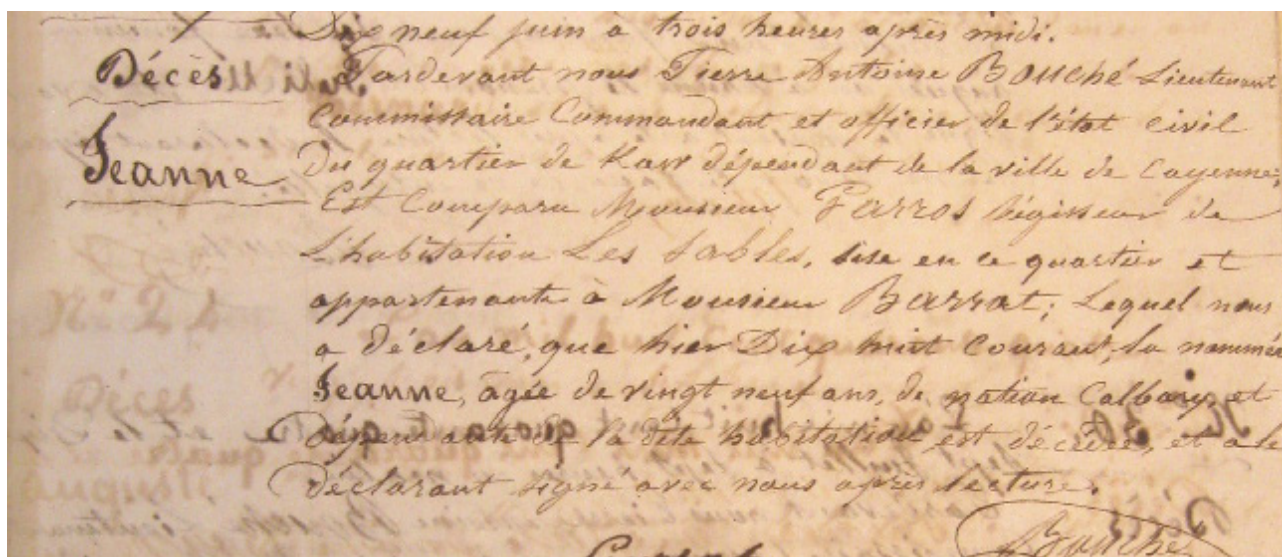 Dix neuf juin à trois heures après midi.
Décès
Jeanne
Pardevant nous Pierre Antoine Bouché Lieutenant
Commissaire Commandant et officier de l'état civil
Du quartier de Kaw dépendant de la ville de Cayenne,
Est Comparu Monsieur Farros Régisseur de
L'habitation Les Sables, sise en ce quartier et
appartenante à Monsieur Barrat; Lequel nous
a déclaré, que hier Dix huit Courant, la nommée
Jeanne, âgée de vingt neuf ans, de nation Calbary, et
Dépendante de la dite habitation est décédée, et a le
Déclarant signé avec nous après lecture.
Bouché